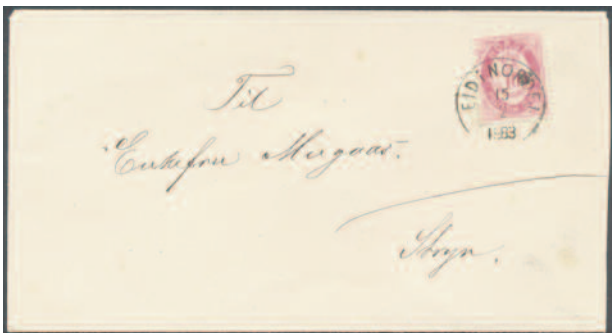 EIDSNORDFJ
15
1883
Til
Enkefru Mirgaas.
Stryn.